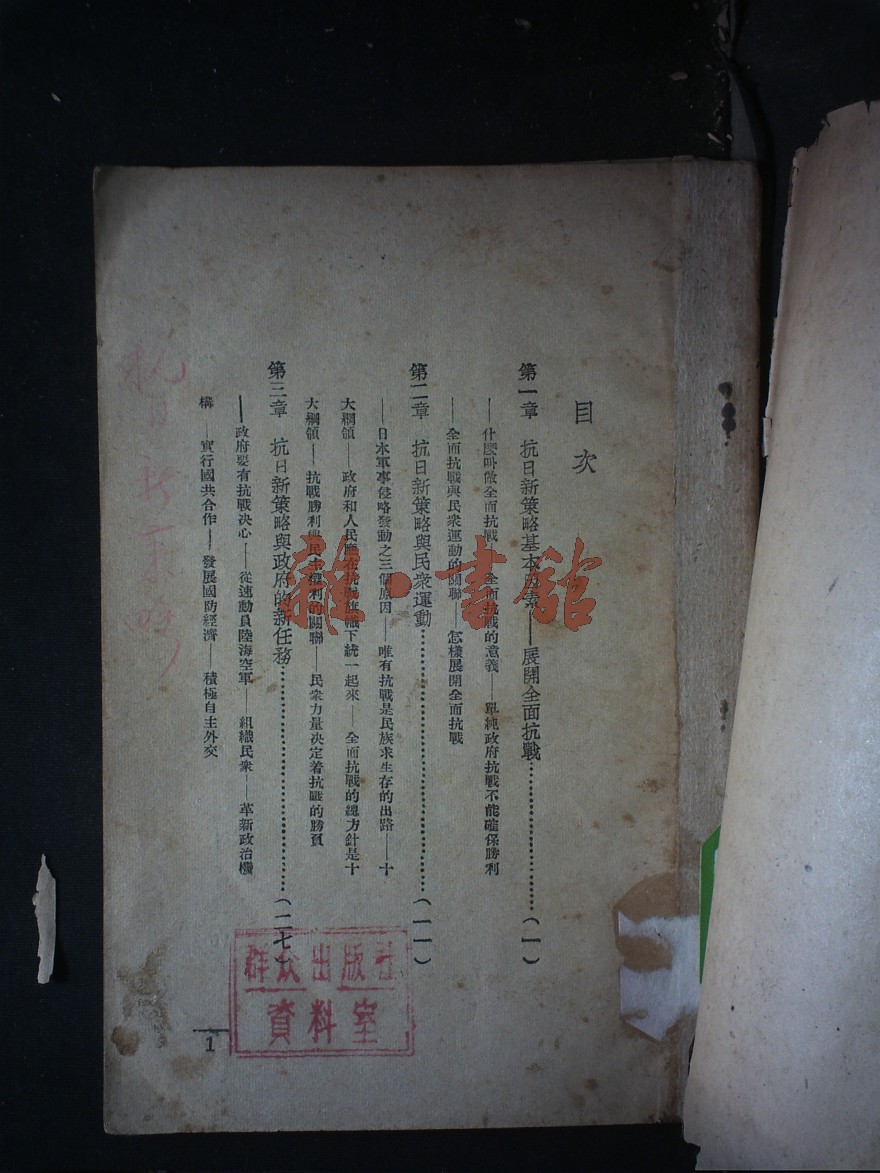 目次
第一章　抗日新策略基本要素——展開全面抗戰……(一)
——什麽叫做全面抗戰——全面抗戰的意義——單純政府抗戰不能確保勝利
——全面抗戰與民衆運動的關聯——怎樣展開全面抗戰
第二章　抗日新策略與民衆運動……(一一)
——日本軍事侵略發動之三個原因——唯有抗戰是民族求生存的出路——十
大綱領——政府和人民應在抗戰旗幟下統一起來——全面抗戰的總方針是十
大綱領——抗戰勝利與民主權利的關聯——民衆力量決定着抗戰的勝負
第三章　抗日新策略與政府的新任務……(二七)
——政府要有抗戰決心——從速動員陸海空軍——組織民衆——革新政治機
構——實行國共合作——發展國防經濟——積極自主外交
1
群众出版社
資料室
雜·書館